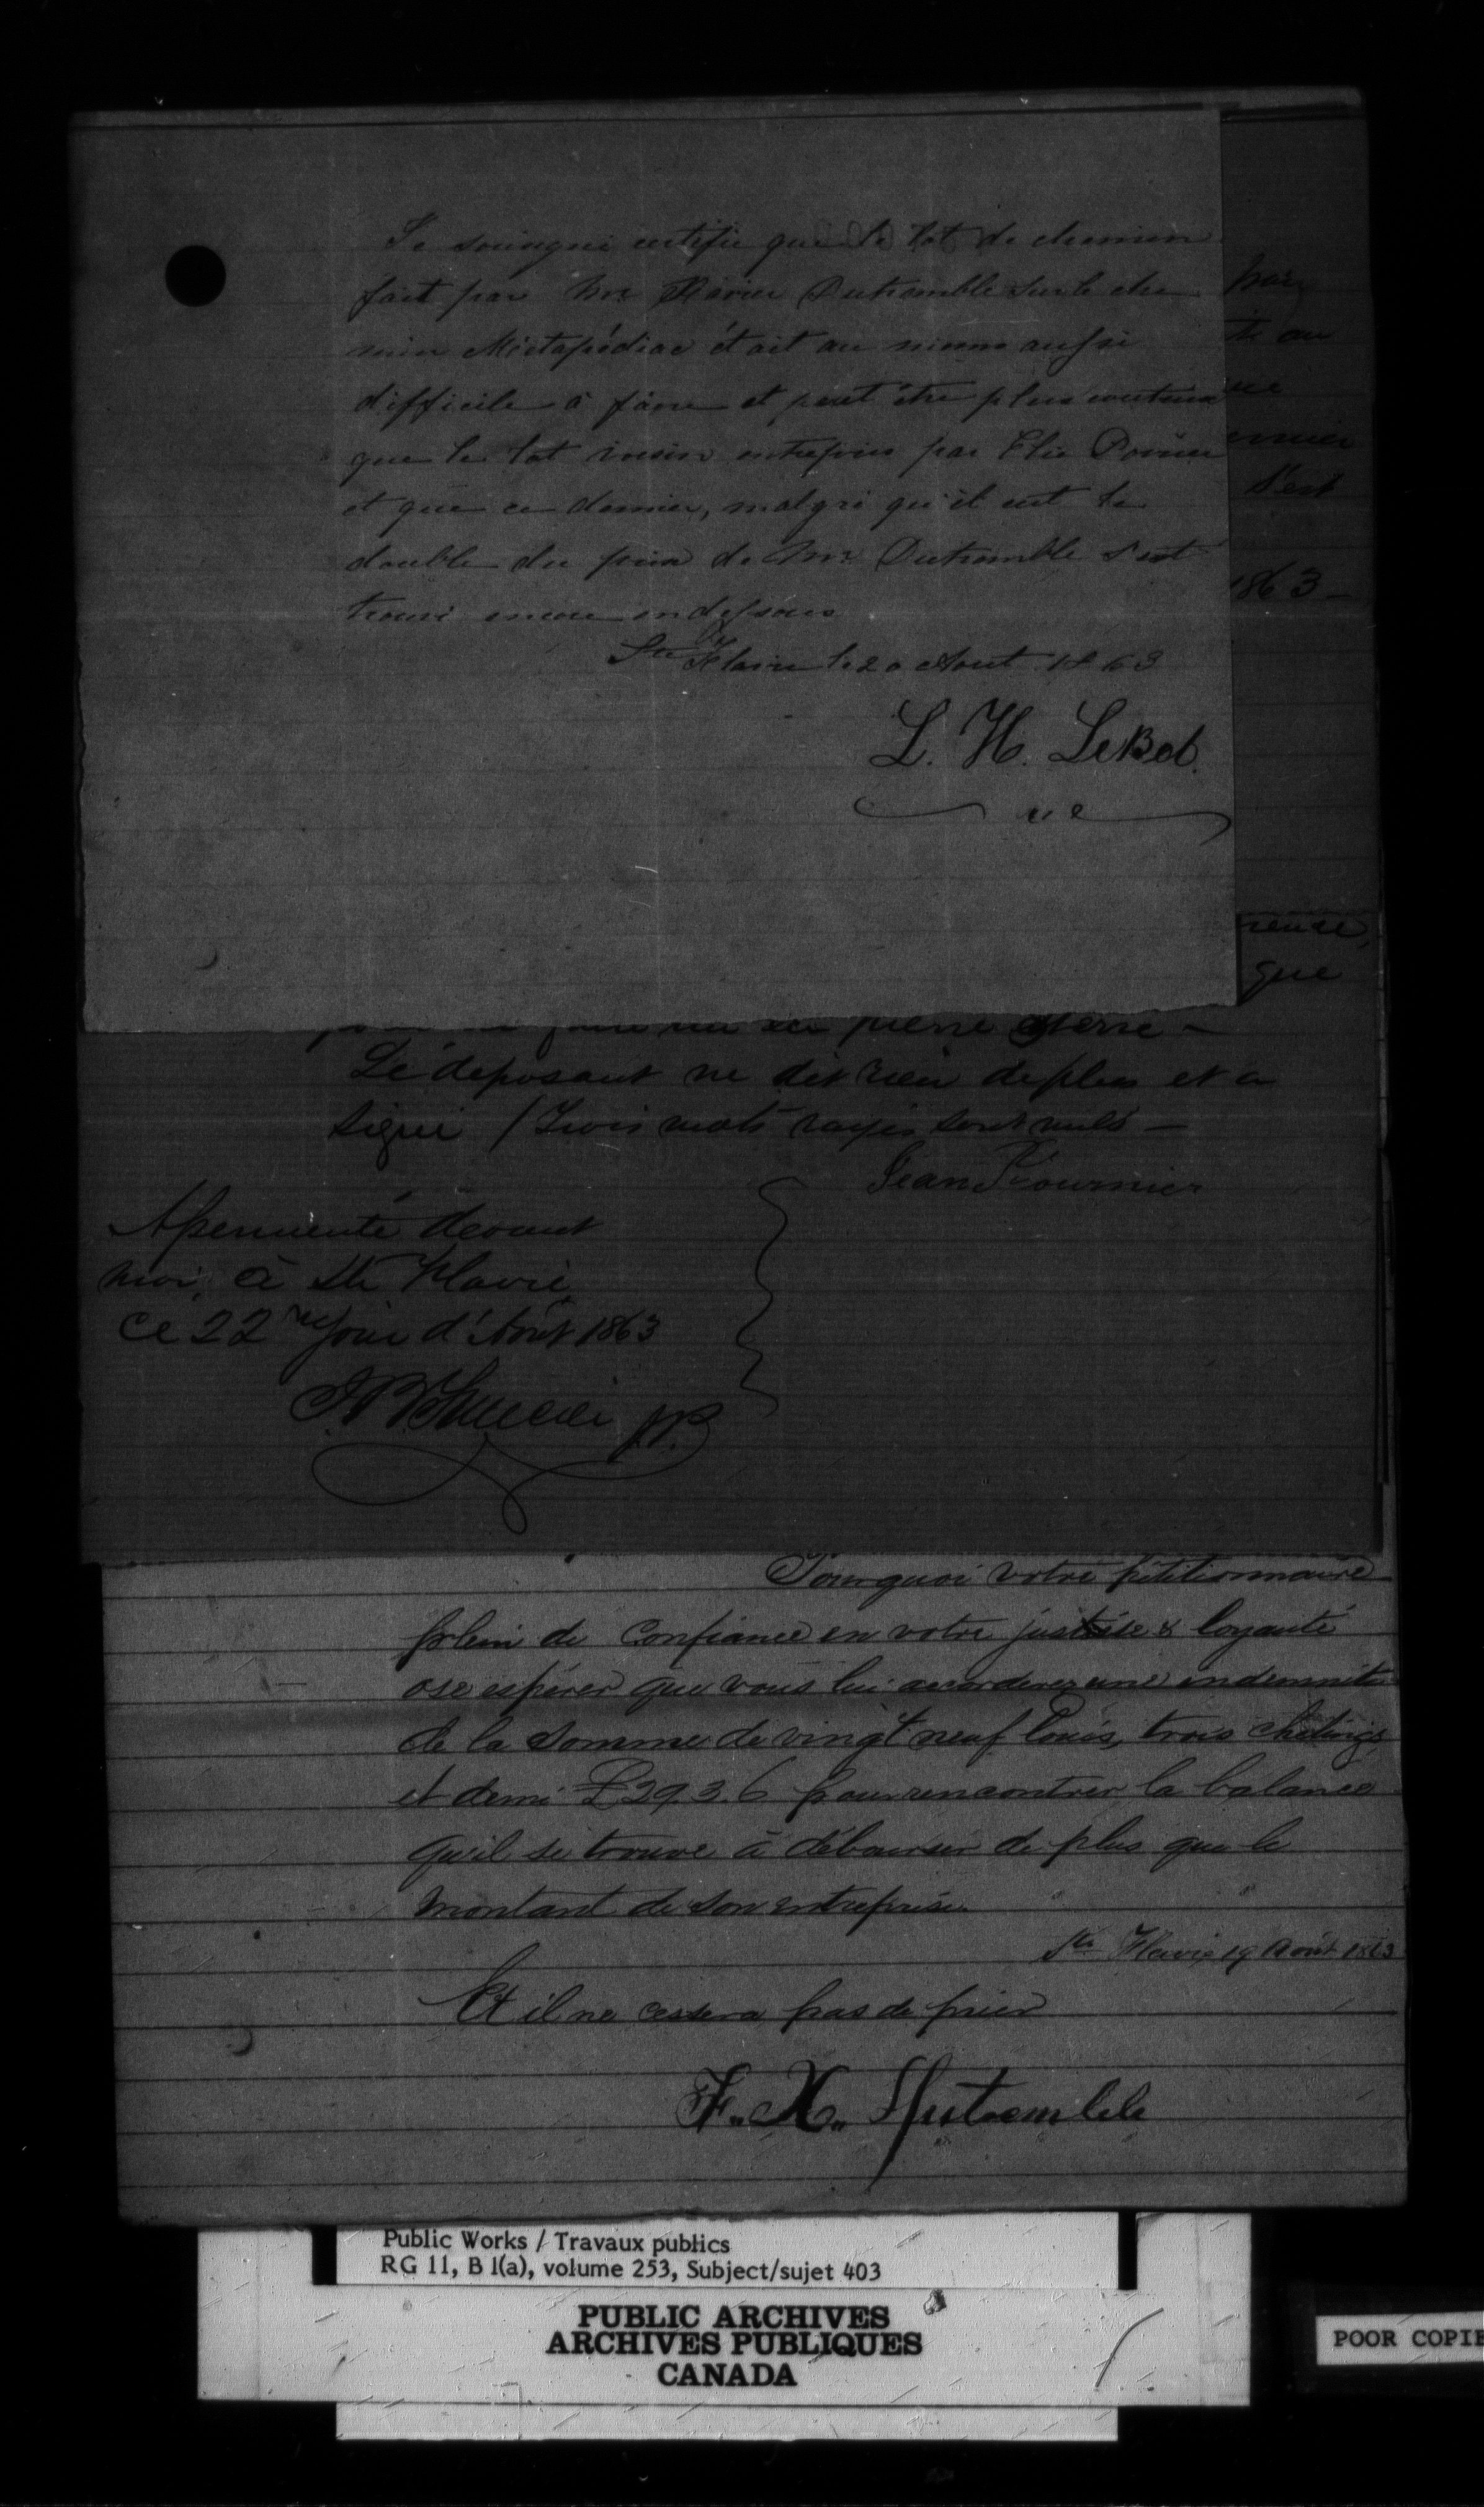 Je soussigné certifie que le lot de chemin
fait par Mr Xavier Dutremble sur le che
min Métapédiac était au moins aussi
difficile à faire et peut être plus couteux
que le lot voisin entrepris par Elie Poirier
et que ce dernier, malgré qu'il eut le
double du prix de Mr Dutremble s'est
trouvé encore en dessous
Ste Flavie le 20 Aout 1863
L. H. LeBel
te au
s'est
1863 —
que
pierre
Le déposant ne dit rien de plus et a
signé / Trois mots rayés sont nuls —
Jean Fournier
Assermenté devant
moi, à Ste Flavie
ce 22me jour d'Août 1863
Pourquoi votre pétitionnaire
plein de confiance en votre justise & loyauté
ose espérer que vous lui accorderez une indemnité
de la somme de vingt neuf louis, trois chelings
et demi £29.3.6 pour rencontrer la balance
qu'il se trouve à débourser de plus que le
montant de son entreprise.
Ste Flavie 19 Août 1863
Et il ne cessera pas de prier
F. X. Dutremble
Public Works / Travaux publics
RG 11, B 1(a), volume 253, Subject/sujet 403
PUBLIC ARCHIVES
ARCHIVES PUBLIQUES
CANADA
POOR COPIE